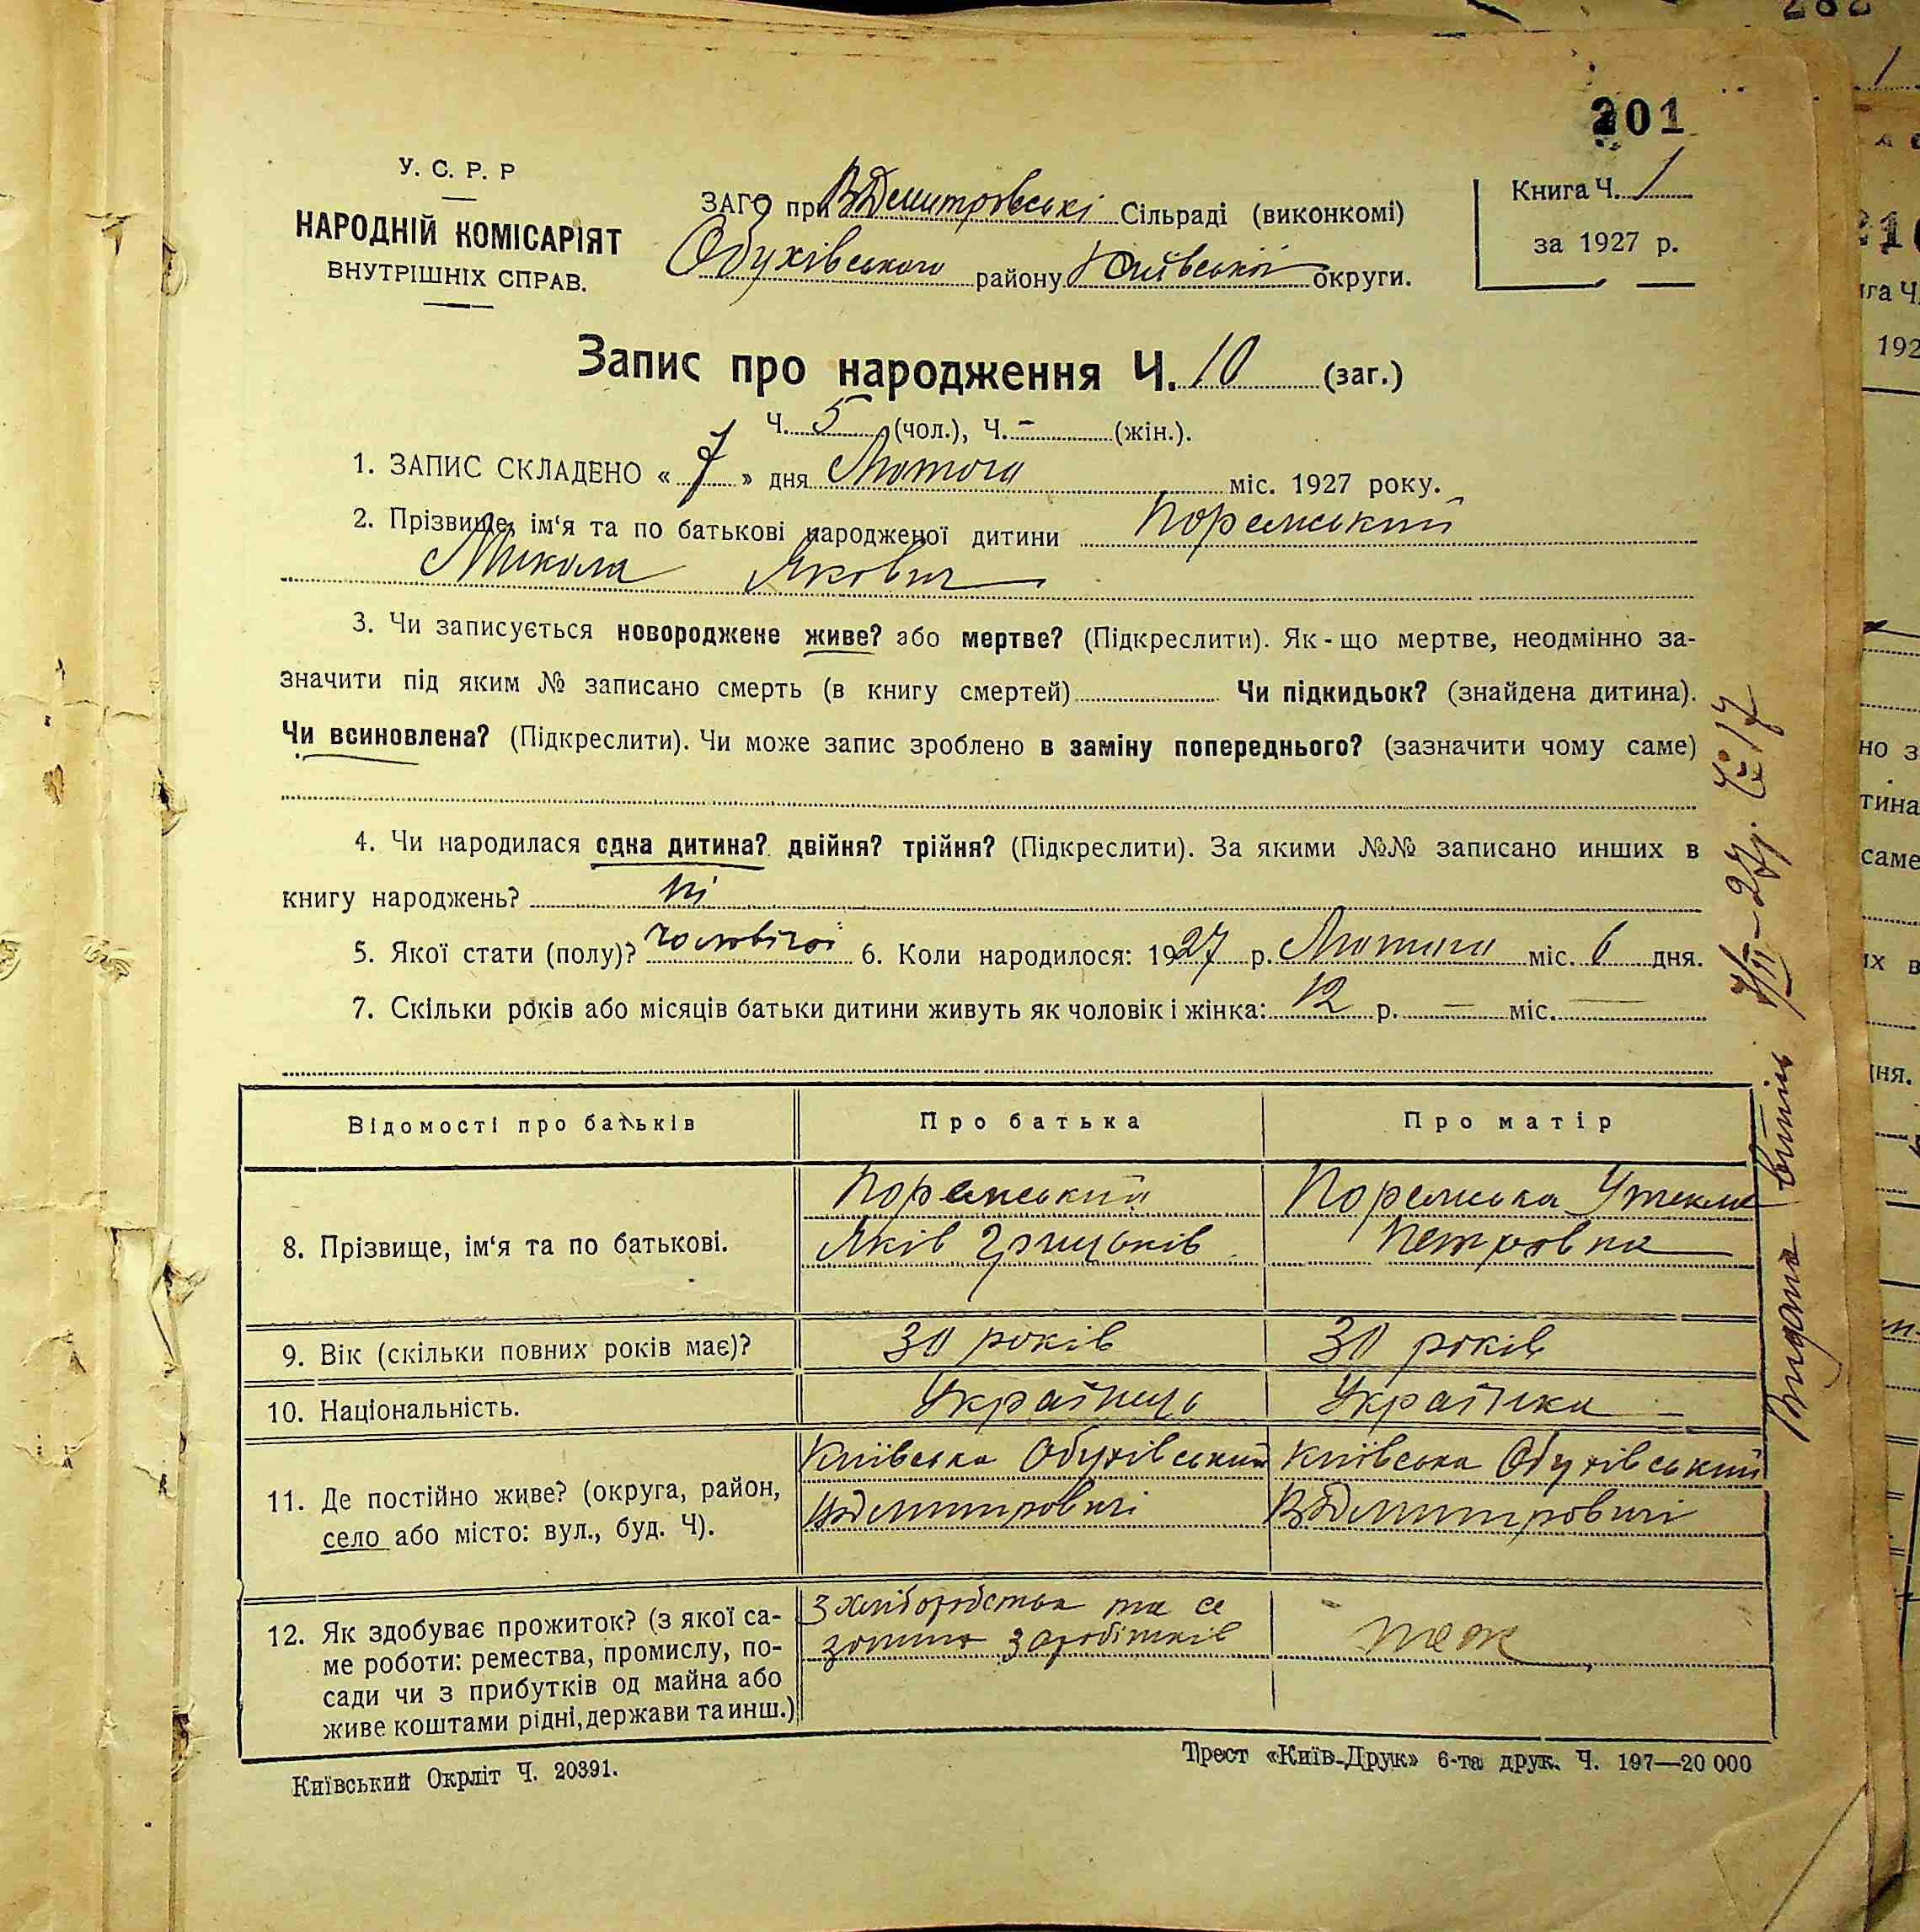 201
У. С. Р. Р
НАРОДНІЙ КОМІСАРІЯТ
ВНУТРІШНІХ СПРАВ.
ЗАГС при ВДмитровські Сільраді (виконкомі)
Обухівського району Київської округи.
Книга Ч. 1
за 1927 р.
Запис про народження Ч. 10 (заг.)
Ч. 5 (чол.), Ч. - (жін.).
1. ЗАПИС СКЛАДЕНО « 7 » дня Лютого міс. 1927 року.
2. Прізвище, ім‘я та по батькові народженої дитини Поремський
Микола Якович
3. Чи записується новороджене живе? або мертве? (Підкреслити). Як-що мертве, неодмінно за-
значити під яким № записано смерть (в книгу смертей) Чи підкидьок? (знайдена дитина).
Чи всиновлена? (Підкреслити). Чи може запис зроблено в заміну попереднього? (зазначити чому саме)
4. Чи народилася одна дитина? двійня? трійня? (Підкреслити). За якими №№ записано инших в
книгу народжень? ні
5. Якої стати (полу)? чоловічої 6. Коли народилося: 1927 р. Лютого міс. 6 дня.
7. Скільки років або місяців батьки дитини живуть як чоловік і жінка: 12 р. — міс. —
Відомості про батьків Про батька Про матір
8. Прізвище, ім‘я та по батькові.
Поремський
Яків Грицьків
Поремська Утекля
Петровна
9. Вік (скільки повних років має)? 30 років 30 років
10. Національність. Українець Українка
11. Де постійно живе? (округа, район,
село або місто: вул., буд. Ч).
Київська Обухівський
ВДмитровичі
Київська Обухівський
ВДмитровичі
12. Як здобуває прожиток? (з якої са-
ме роботи: ремества, промислу, по-
сади чи з прибутків од майна або
живе коштами рідні, держави та инш.)
З хліборобства та се
зонних заробітків
теж
Київський Окрліт Ч. 20391.
Трест «Київ-Друк» 6-та друк. Ч. 197—20 000
Видано витяг 7/II-27р. Ч. 17